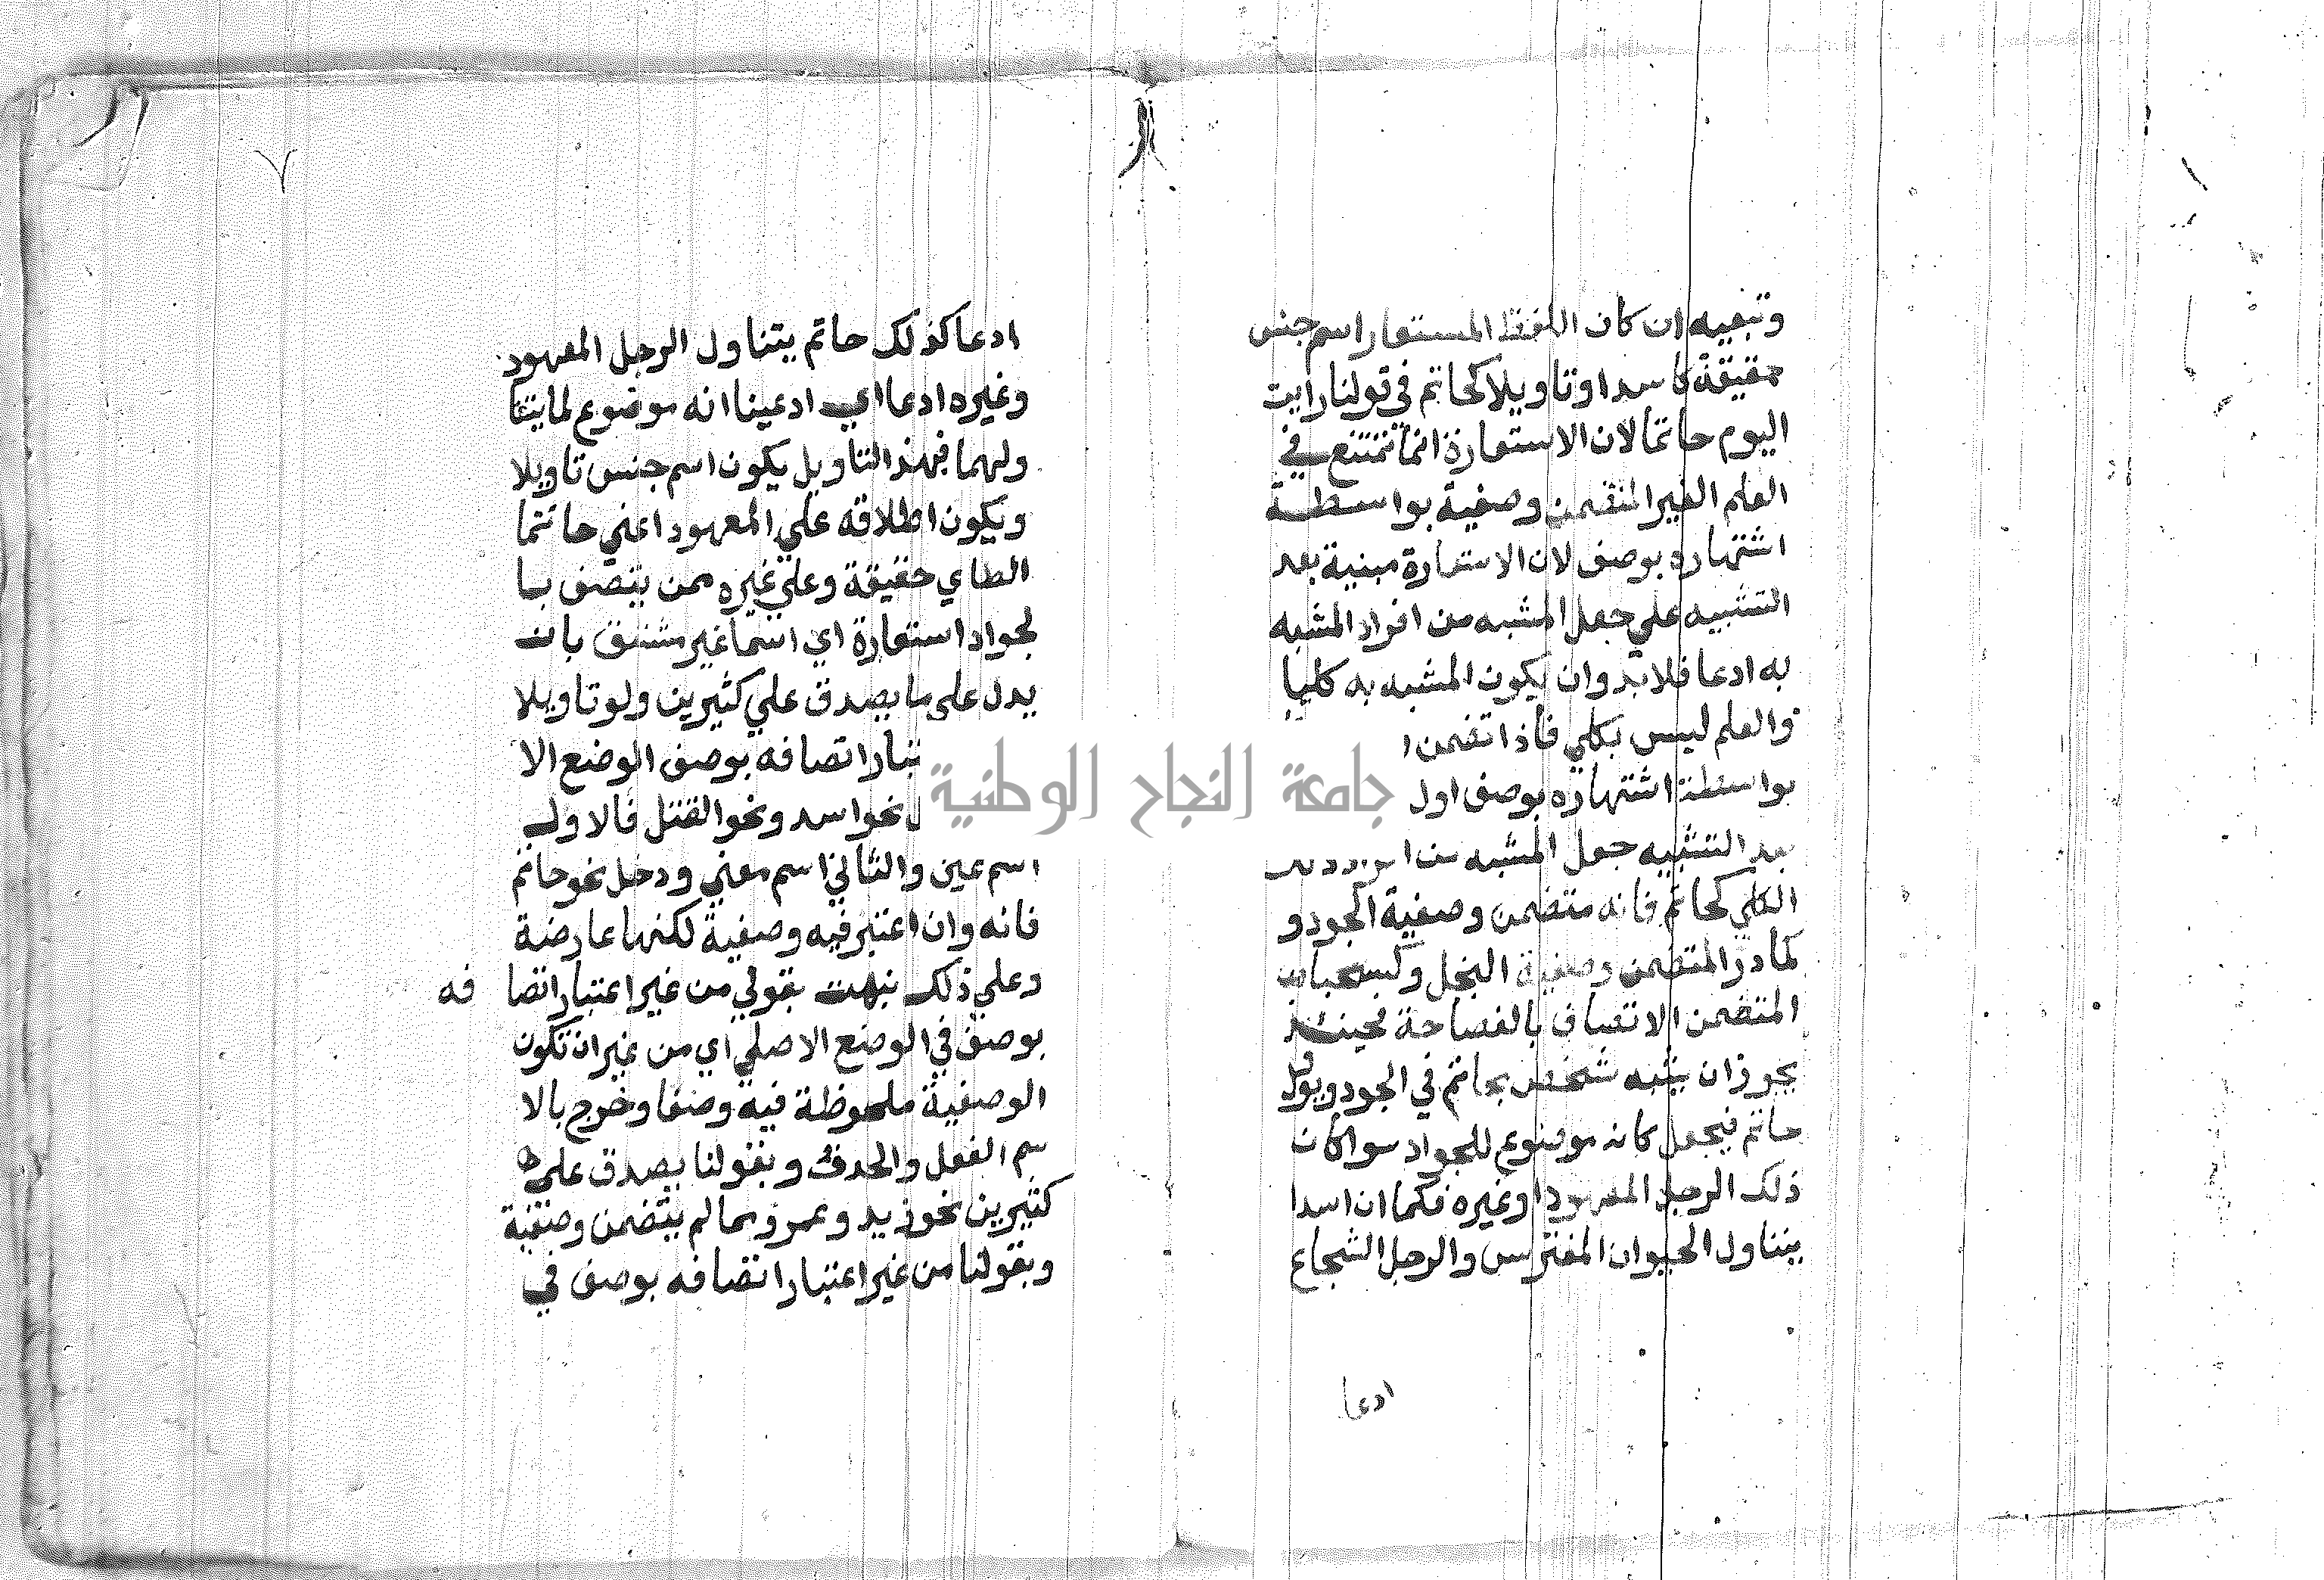 وتبعيه ان كان اللفظ المستعار اسم جنس
حقيقة كاسد اوتاويلا كحاتم في قولنا رايت
اليوم حاتما لان الاستعارة انما تمتنع في
العلم الغير المتضمن وصفية بواسطة
اشتهاره بوصف لان الاستعارة مبنية بعد
التشبيه علي جعل المشبه من افراد المشبه
به ادعا فلا بد وان يكون المشبه به كليا
والعلم ليس بكلي فاذا تضمن ا
بواسطة اشتهاره بوصف اول
بعد التشبيه جعل المشبه من
الكلي كحاتم فانه متضمن وصفية الجود و
كمادر المتضمن وصفية البخل وكسحبان
المتضمن الاتصاف بالفصاحة فحينئذ
يجوز ان يشبه شخص بحاتم في الجود ويول
حاتم فيجعل كانه موضوع للجواد سوا كان
ذلك الرجل المعهود او غيره فكما ان اسدا
يتناول الحيوان المفترس والرجل الشجاع
ادعا
٧
ادعا كذلك حاتم يتناول الرجل المعهود
وغيره ادعا اي ادعينا انه موضوع لما يتنا
ولهما فبهذا التاويل يكون اسم جنس تاويلا
ويكون اطلاقه علي المعهود اعني حاتما
الطاي حقيقة وعلي غيره ممن يتصف با
لجواد استعارة اي اسما غير مشتق بان
يدل علي ما يصدق علي كثيرين ولو تاويلا
تبار اتصافه بوصف الوضع الا
ل نحو اسد ونحو القتل فالاول
اسم عين والثاني اسم معني ودخل نحو حاتم
فانه وان اعتبر فيه وصفية لكنها عارضة
وعلي ذلك نبهت بقولي من غير اعتبار اتصا فه
بوصف في الوضع الاصلي اي من غير ان تكون
الوصفية ملحوظة فيه وضعا وخرج بالا
سم الفعل والحرف وبقولنا يصدق علي
كثيرين نحو زيد وعمرو مما لم يتضمن وصفية
وبقولنا من غير اعتبار اتصافه بوصف في
جامعة النجاح الوطنية